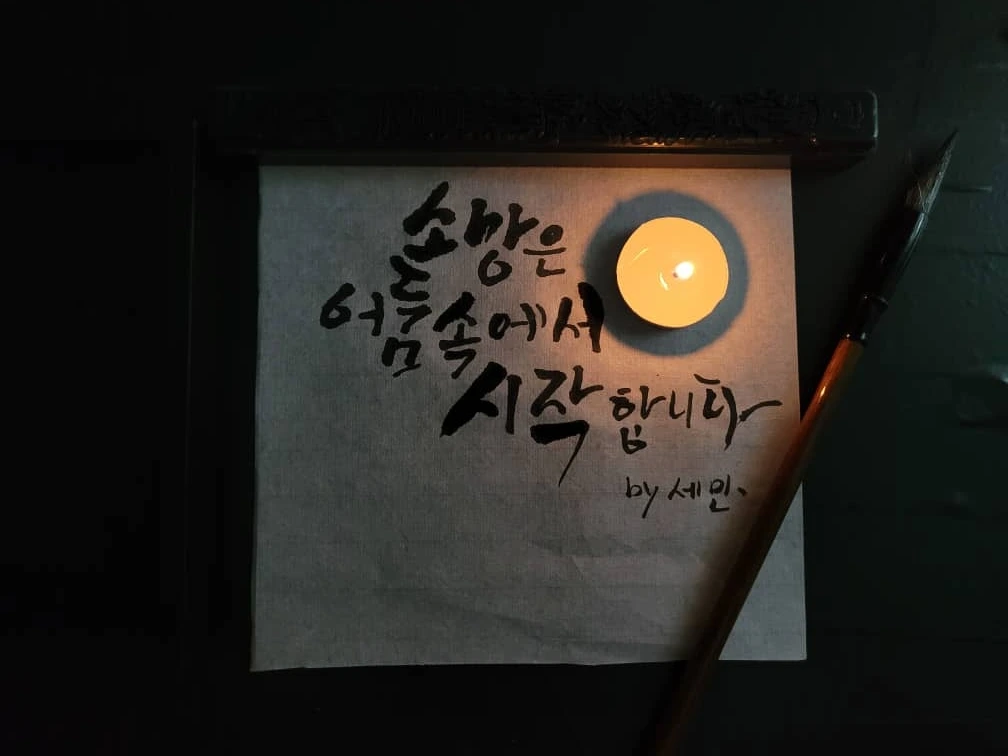 소망은
어둠속에서
시작합니다
by 세민.